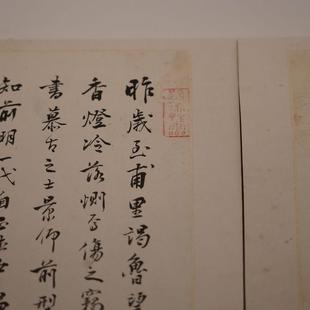 昨歲至甫里謁魯望
香燈冷落惻焉傷之竊
書慕古之士景仰前型
知前明一代自